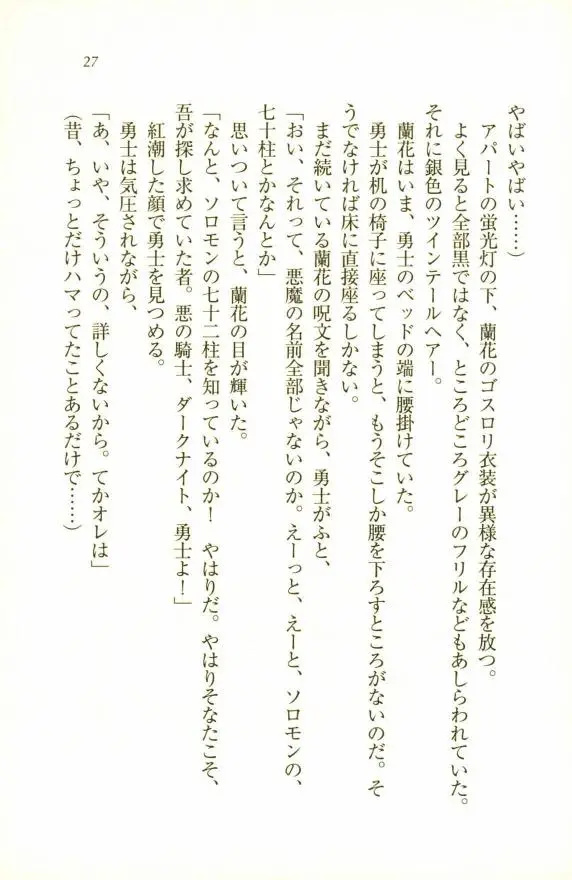 27
やばいやばい……）
アパートの蛍光灯の下、蘭花のゴスロリ衣装が異様な存在感を放つ。
よく見ると全部黒ではなく、ところどころグレーのフリルなどもあしらわれていた。
それに銀色のツインテールヘアー。
蘭花はいま、勇士のベッドの端に腰掛けていた。
勇士が机の椅子に座ってしまうと、もうそこしか腰を下ろすところがないのだ。そ
うでなければ床に直接座るしかない。
まだ続いている蘭花の呪文を聞きながら、勇士がふと、
「おい、それって、悪魔の名前全部じゃないのか。えーっと、えーと、ソロモンの、
七十柱とかなんとか」
思いついて言うと、蘭花の目が輝いた。
「なんと、ソロモンの七十二柱を知っているのか！　やはりだ。やはりそなたこそ、
吾が探し求めていた者。悪の騎士、ダークナイト、勇士よ！」
紅潮した顔で勇士を見つめる。
勇士は気圧されながら、
「あ、いや、そういうの、詳しくないから。てかオレは」
（昔、ちょっとだけハマってたことあるだけで……）